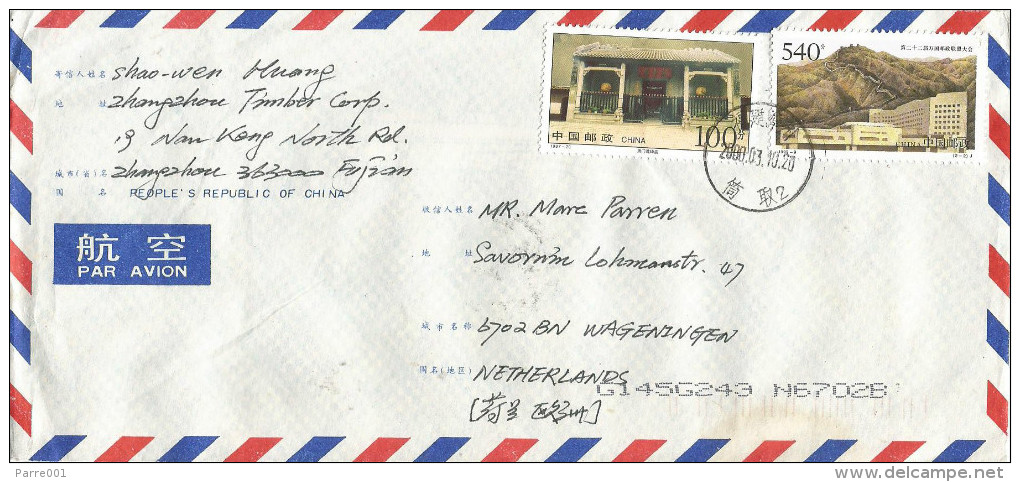 寄信人姓名 Shao-wen Huang
地 址 Zhangzhou Timber Corp.
13 Nan Keng North Rd.
城市(省)名 Zhangzhou 363000 Fujian
国 名 PEOPLE'S REPUBLIC OF CHINA
航空
PAR AVION
中国邮政 CHINA 100分
540分
第二十二届万国邮政联盟大会
CHINA 中国邮政
2000.03.10.20
筒取2
收信人姓名 MR. Marc Parren
地 址 Savornin Lohmanstr. 47
城市名称 6702 BN WAGENINGEN
国名(地区) NETHERLANDS
[荷兰 欧洲]
G145G249 N6702B
Parre001
delcampe.net